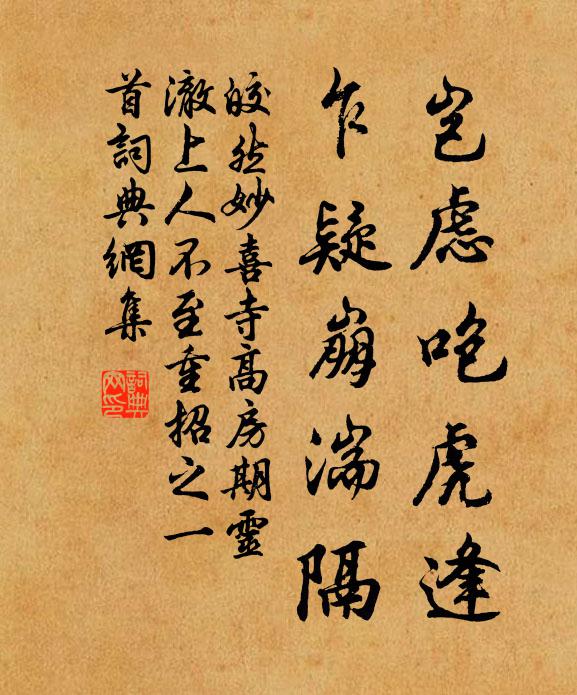 岂虑咆虎逢
乍疑崩湍隔
皎然妙喜寺高房期靈
澈上人不至重招之一
首詞典網集
詞典
网印